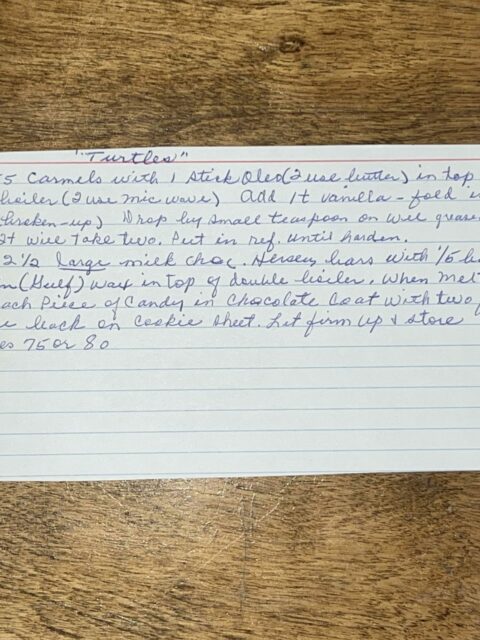 "Turtles"
5 Carmels with 1 stick Oleo (I use butter) in top
boiler (I use mic wave) Add 1t vanilla - fold i
broken-up) Drop by small teaspoon on well grease
It will take two. Put in ref. until harden.
2 1/2 large milk choc. Hersey bars with 1/5 b
(Gulf) wax in top of double boiler. When Mel
ach Piece of Candy in Chocolate Coat with two
back on cookie sheet. Let firm up & store
es 75 or 80